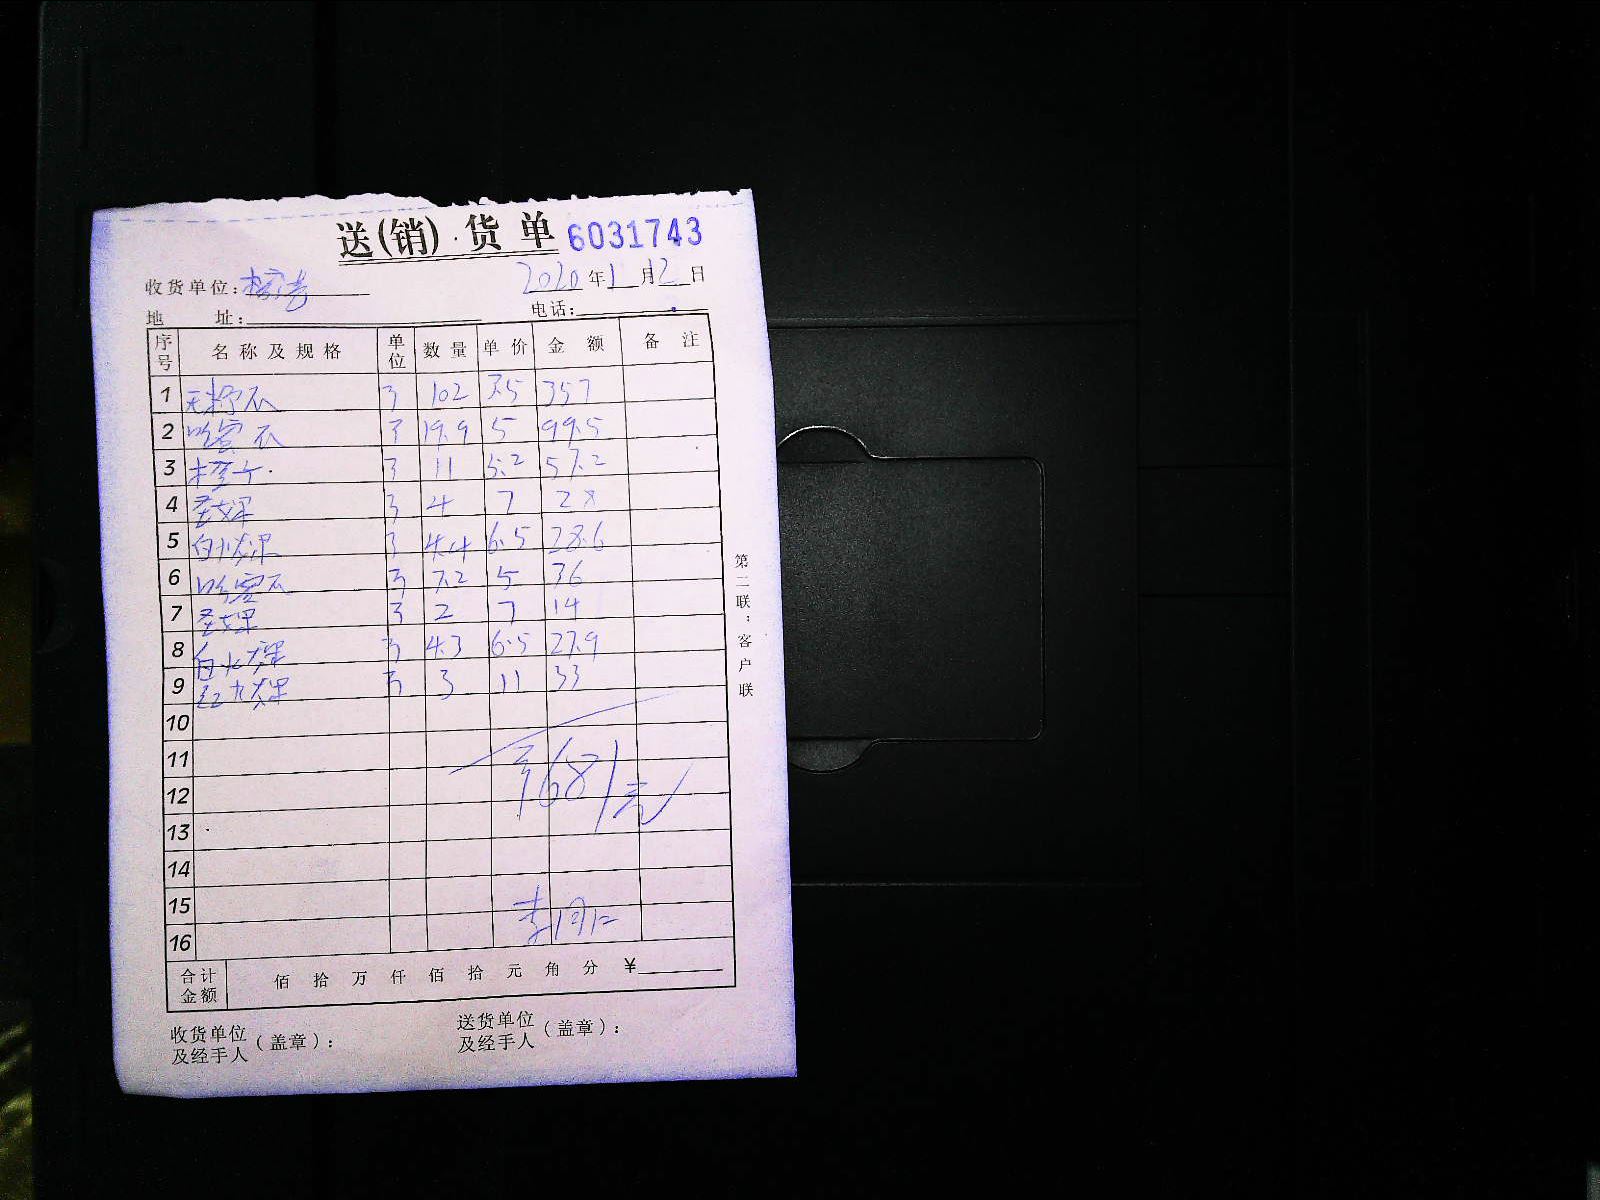 送(销)货单 6031743
收货单位: 2020年1月12日
地 址: 电话:
序号 名称及规格 单位 数量 单价 金额 备注
1 102 3.5 357
2 哈密瓜 19.9 5 99.5
3 橙子 11 5.2 57.2
4 圣女果 4 7 28
5 白火龙果 4.4 6.5 28.6
6 哈密瓜 7.2 5 36
7 圣女果 2 7 14
8 白火龙果 4.3 6.5 27.9
9 红火龙果 3 11 33
10
11
¥681元
12
13
14
15
16
合计金额 佰 拾 万 仟 佰 拾 元 角 分 ¥
收货单位及经手人(盖章): 送货单位及经手人(盖章):
第二联:客户联